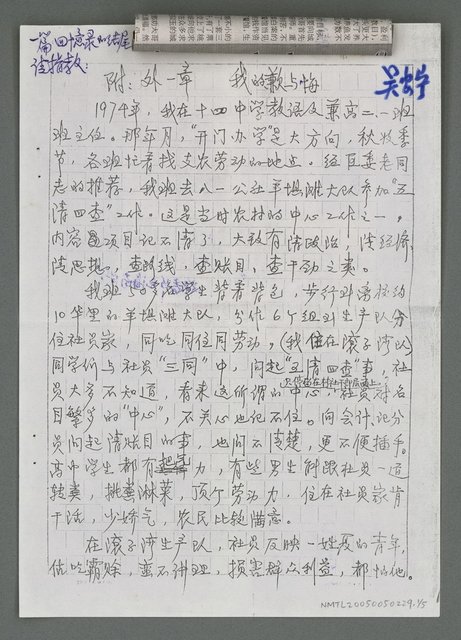 一篇回忆录的结尾
请指教:
附:外一章 我的歉与悔
1974年,我在十四中学教语文兼高二.一班
班主任。那年月,"开门办学"是大方向,秋收季
节,各班忙着找支农劳动的地点。经区委老同
志的推荐,我班去八一公社羊堤湫大队参加"五
清四查"工作。这是当时农村的中心工作之一。
内容项目记不清了,大致有清政治,清经济,
清思想,查路线,查账目,查干劲之类。
我班50多名学生背着背包,步行到离校约
10华里的羊堤湫大队,分作6个组到生产队分
住社员家,同吃同住同劳动。(我住在滚子湾队)
同学们与社员"三同"中,问起"五清四查"事,社
员大多不知道,看来这所谓的"中心",社员对名
目繁多的"中心",不关心也记不住。向会计、记分
员问起清账目的事,也问不清楚,更不便插手。
高中学生都有力,有些男生能跟社员一道
挑粪淋菜,顶个劳动力,住在社员家肯
干活,少娇气,农民比较满意。
在滚子湾生产队,社员反映一姓聂的青年,
估吃霸赊,蛮不讲理,损害群众利益,都怕他。
NMTL20050050229.1/5